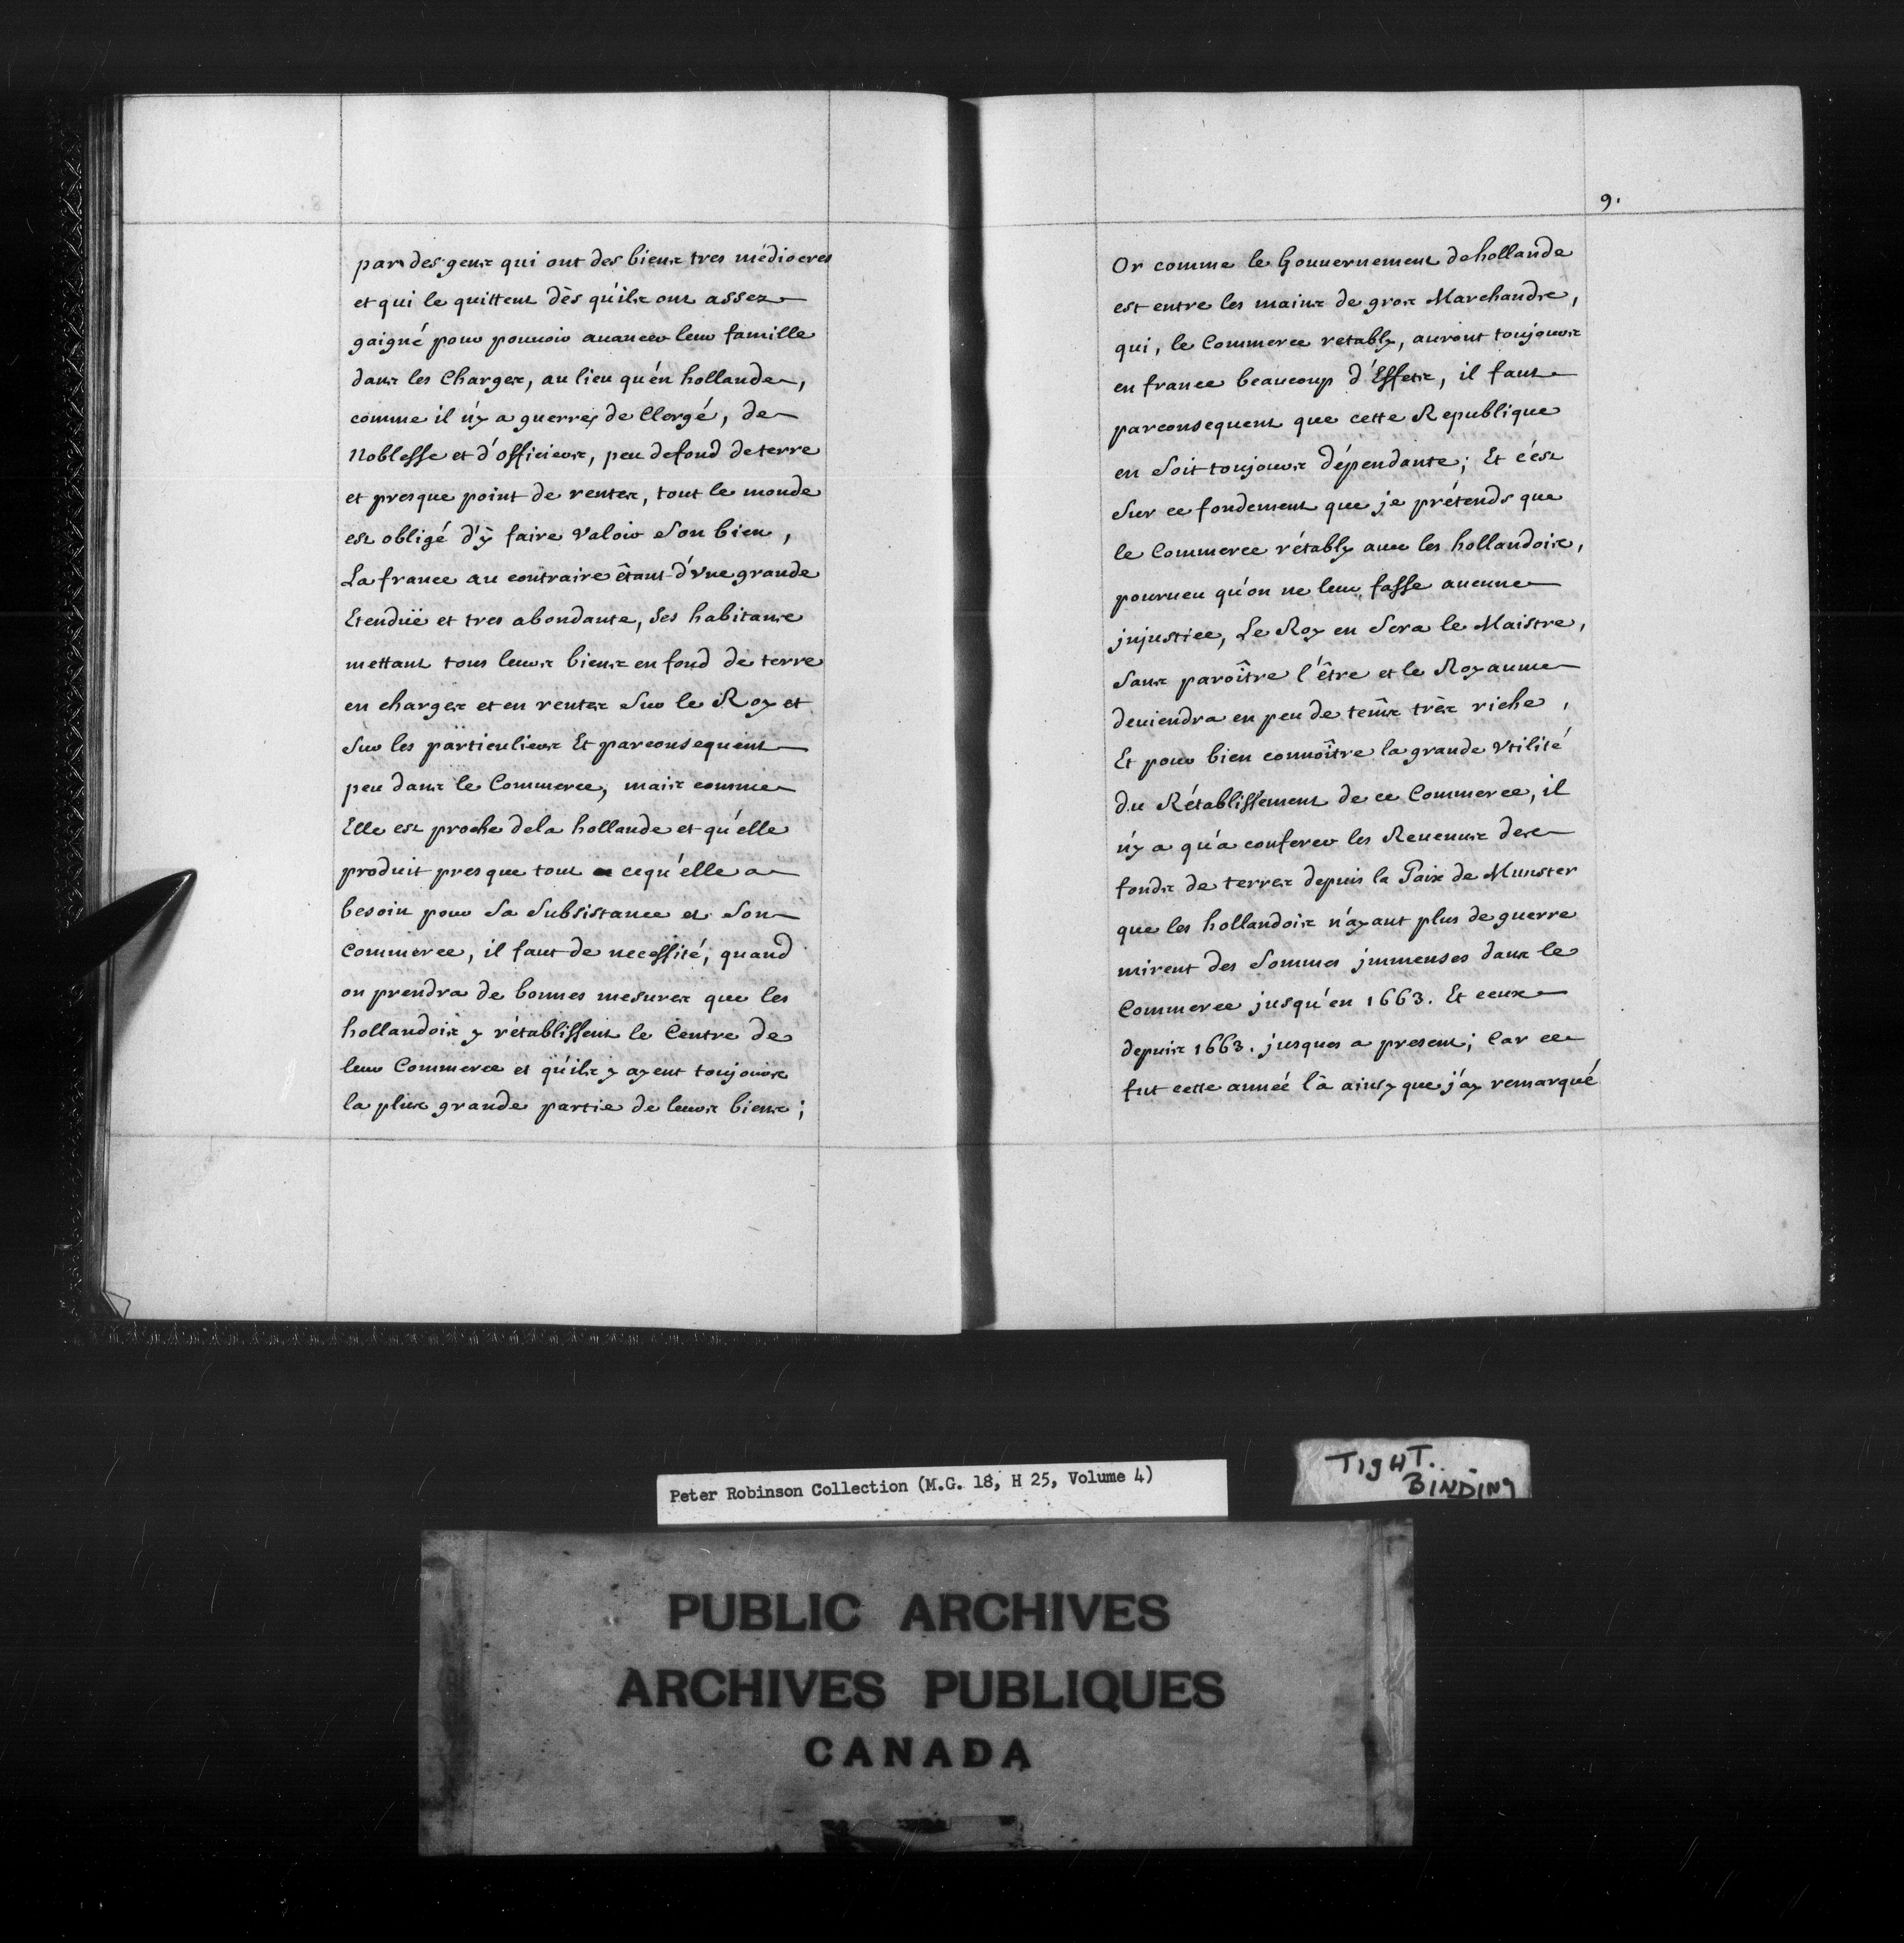 par des gens qui ont des biens tres médiocres
et qui le quittent dès qu'ils ont assez
gaigné pour pouuoir auancer leur famille
dans les Charges, au lieu qu'en hollande,
comme il n'y a guerres de Clergé, de
Noblesse et d'officiers, peu de fond de terre
et presque point de rentes, tout le monde
est obligé d'y faire valoir son bien,
La france au contraire êtant d'vne grande
Etenduë et tres abondante, Ses habitans
mettant tous leurs biens en fond de terre
en charges et en rentes sur le Roy et
sur les particuliers Et par consequent
peu dans le Commerce, mais comme
Elle est proche de la hollande et qu'elle
produit presque tout ce qu'elle a
besoin pour sa subsistance et son
commerce, il faut de necessité, quand
on prendra de bonnes mesures que les
hollandois y rétablissent le Centre de
leur Commerce et qu'ils y ayent toujours
la plus grande partie de leurs biens;
9.
Or comme le Gouuernement de hollande
est entre les mains de gros Marchands,
qui, le Commerce retably, auront toujours
en france beaucoup d'Effets, il faut
par consequent que cette Republique
en soit toujours dépendante; Et c'est
sur ce fondement que je prétends que
le Commerce rétably auec les hollandois,
pourueu qu'on ne leur fasse aucune
jnjustice, Le Roy en sera le Maistre,
sans paroître l'être et le Royaume
deuiendra en peu de tems très riche,
Et pour bien connoître la grande vtilité
du Rétablissement de ce Commerce, il
n'y a qu'a conferer les Reuenus des
fonds de terres depuis la Paix de Munster
que les hollandois n'ayant plus de guerre
mirent des sommes jmmenses dans le
Commerce jusqu'en 1663. Et ceux
depuis 1663. jusques a present; Car ce
fut cette année là ainsy que j'ay remarqué
Peter Robinson Collection (M.G. 18, H 25, Volume 4)
TIGHT.
BINDING
PUBLIC ARCHIVES
ARCHIVES PUBLIQUES
CANADA